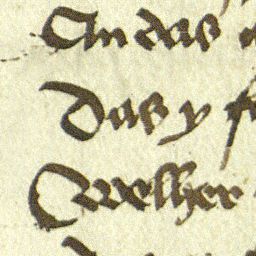 An das
Das y
Welher